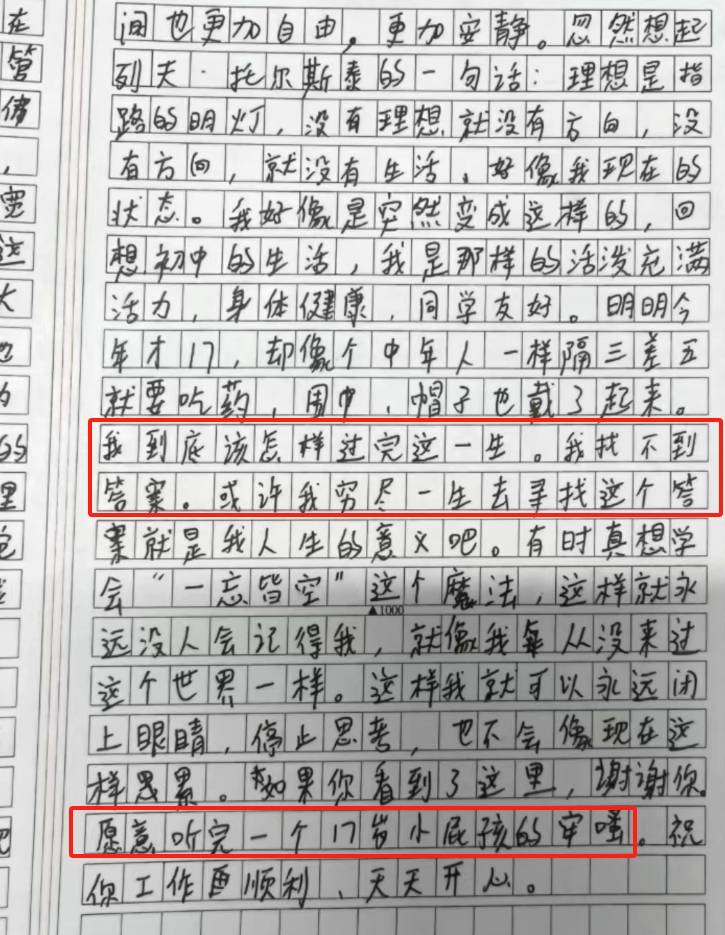 在
管
间也更加自由，更加安静。忽然想起
列夫·托尔斯泰的一句话：理想是指
路的明灯，没有理想就没有方向，没
有方向，就没有生活，好像我现在的
状态。我好像是突然变成这样的，回
想初中的生活，我是那样的活泼充满
活力，身体健康，同学友好。明明今
年才17，却像个中年人一样隔三差五
就要吃药，周中，帽子也戴了起来。
我到底该怎样过完这一生。我找不到
答案。或许我穷尽一生去寻找这个答
案就是我人生的意义吧。有时真想学
会“一忘皆空”这个魔法，这样就永
▲1000
远没人会记得我，就像我从没来过
这个世界一样。这样我就可以永远闭
上眼睛，停止思考，也不会像现在这
样思累。如果你看到了这里，谢谢你
愿意听完一个17岁小屁孩的牢骚。祝
你工作顺利，天天开心。